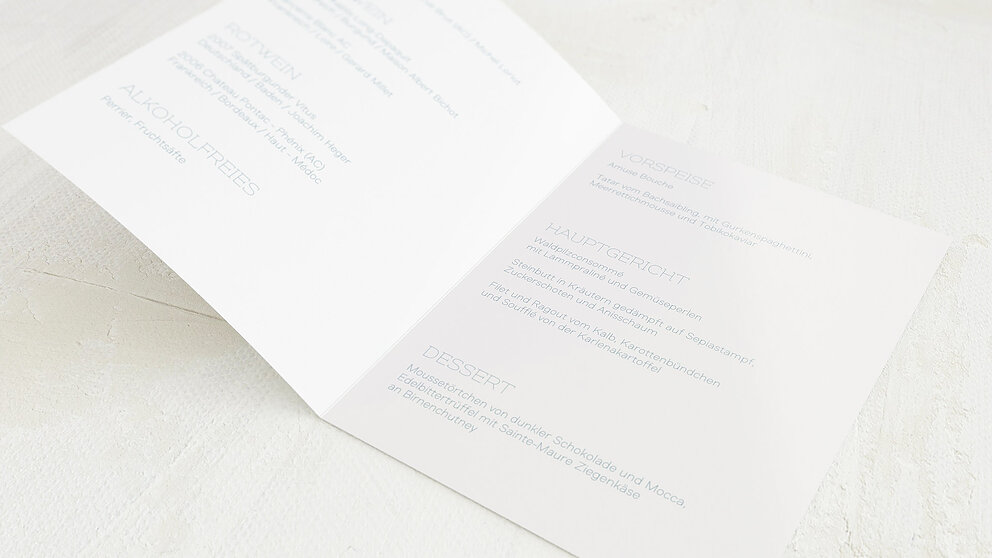 EIN
Lung Dezaault
eich / Burgund / Maison Albert Bichot
Blanc, AC,
eich / Loire, Gerard Millet
ROTWEIN
2007 Spätburgunder Vitus
Deutschland / Baden / Joachim Heger
2006 Chateau Pontac - Phénix (AC)
Frankreich / Bordeaux / Haut - Médoc
ALKOHOLFREIES
Perrier, Fruchtsäfte
VORSPEISE
Amuse Bouche
Tatar vom Bachsaibling, mit Gurkenspaghettini,
Meerrettichmousse und Tobikokaviar
HAUPTGERICHT
Waldpilzconsommé
mit Lammpraliné und Gemüseperlen
Steinbutt in Kräutern gedämpft auf Sepiastampf,
Zuckerschoten und Anisschaum
Filet und Ragout vom Kalb, Karottenbündchen
und Soufflé von der Karlenakartoffel
DESSERT
Moussetörtchen von dunkler Schokolade und Mocca,
Edelbittertrüffel mit Sainte-Maure Ziegenkäse
an Birnenchutney